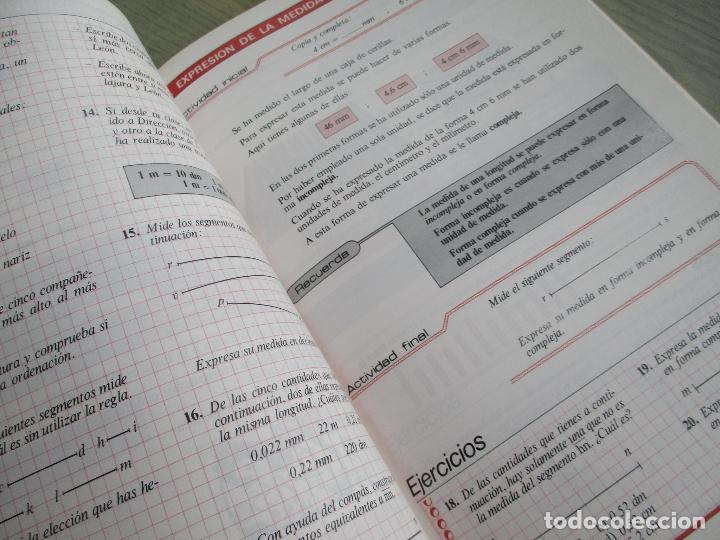 Escribe dos
si más cerca
León.
Escribe ahora
estén entre
lajara y León
14. Si desde tu
ido a Dirección,
y otro a la clase de
ha realizado una
1 m = 10 dm
1 m =
15. Mide los segmentos que
tinuación:
r
v
p
Expresa su medida en
16. De las cinco cantidades
continuación, dos de ellas
la misma longitud. ¿Cuáles
0,022 mm 22 m 0,22
0,22 mm 220 dm
Con ayuda del compás,
mentos equivalentes a
un
ales:
elo
nariz
e cinco compañe-
más alto al más
tura y comprueba si
a ordenación.
uientes segmentos mide
uál es sin utilizar la regla.
d h i
k l m
la elección que has he-
EXPRESION DE LA MEDIDA
Actividad inicial
Copia y completa:
4 cm = mm ; 6
Se ha medido el largo de una caja de cerillas.
Para expresar esta medida se puede hacer de varias formas.
Aquí tienes algunas de ellas:
46 mm ; 4,6 cm ; 4 cm 6 mm
En las dos primeras formas se ha utilizado sólo una unidad de medida.
Por haber empleado una sola unidad, se dice que la medida está expresada en for-
ma incompleja.
Cuando se ha expresado la medida de la forma 4 cm 6 mm se han utilizado dos
unidades de medida, el centímetro y el milímetro.
A esta forma de expresar una medida se le llama compleja.
Recuerda
La medida de una longitud se puede expresar en forma
incompleja o en forma compleja.
Forma incompleja es cuando se expresa sólo con una
unidad de medida.
Forma compleja cuando se expresa con más de una uni-
dad de medida.
Actividad final
Mide el siguiente segmento:
r s
Expresa su medida en forma incompleja y en forma
compleja.
Ejercicios
18. De las cantidades que tienes a conti-
nuación, hay solamente una que no es
la medida del segmento hn. ¿Cuál es?
n
0,52 dn
19. Expresa la medida
en forma comple
m
20. Expre
todocoleccion.net